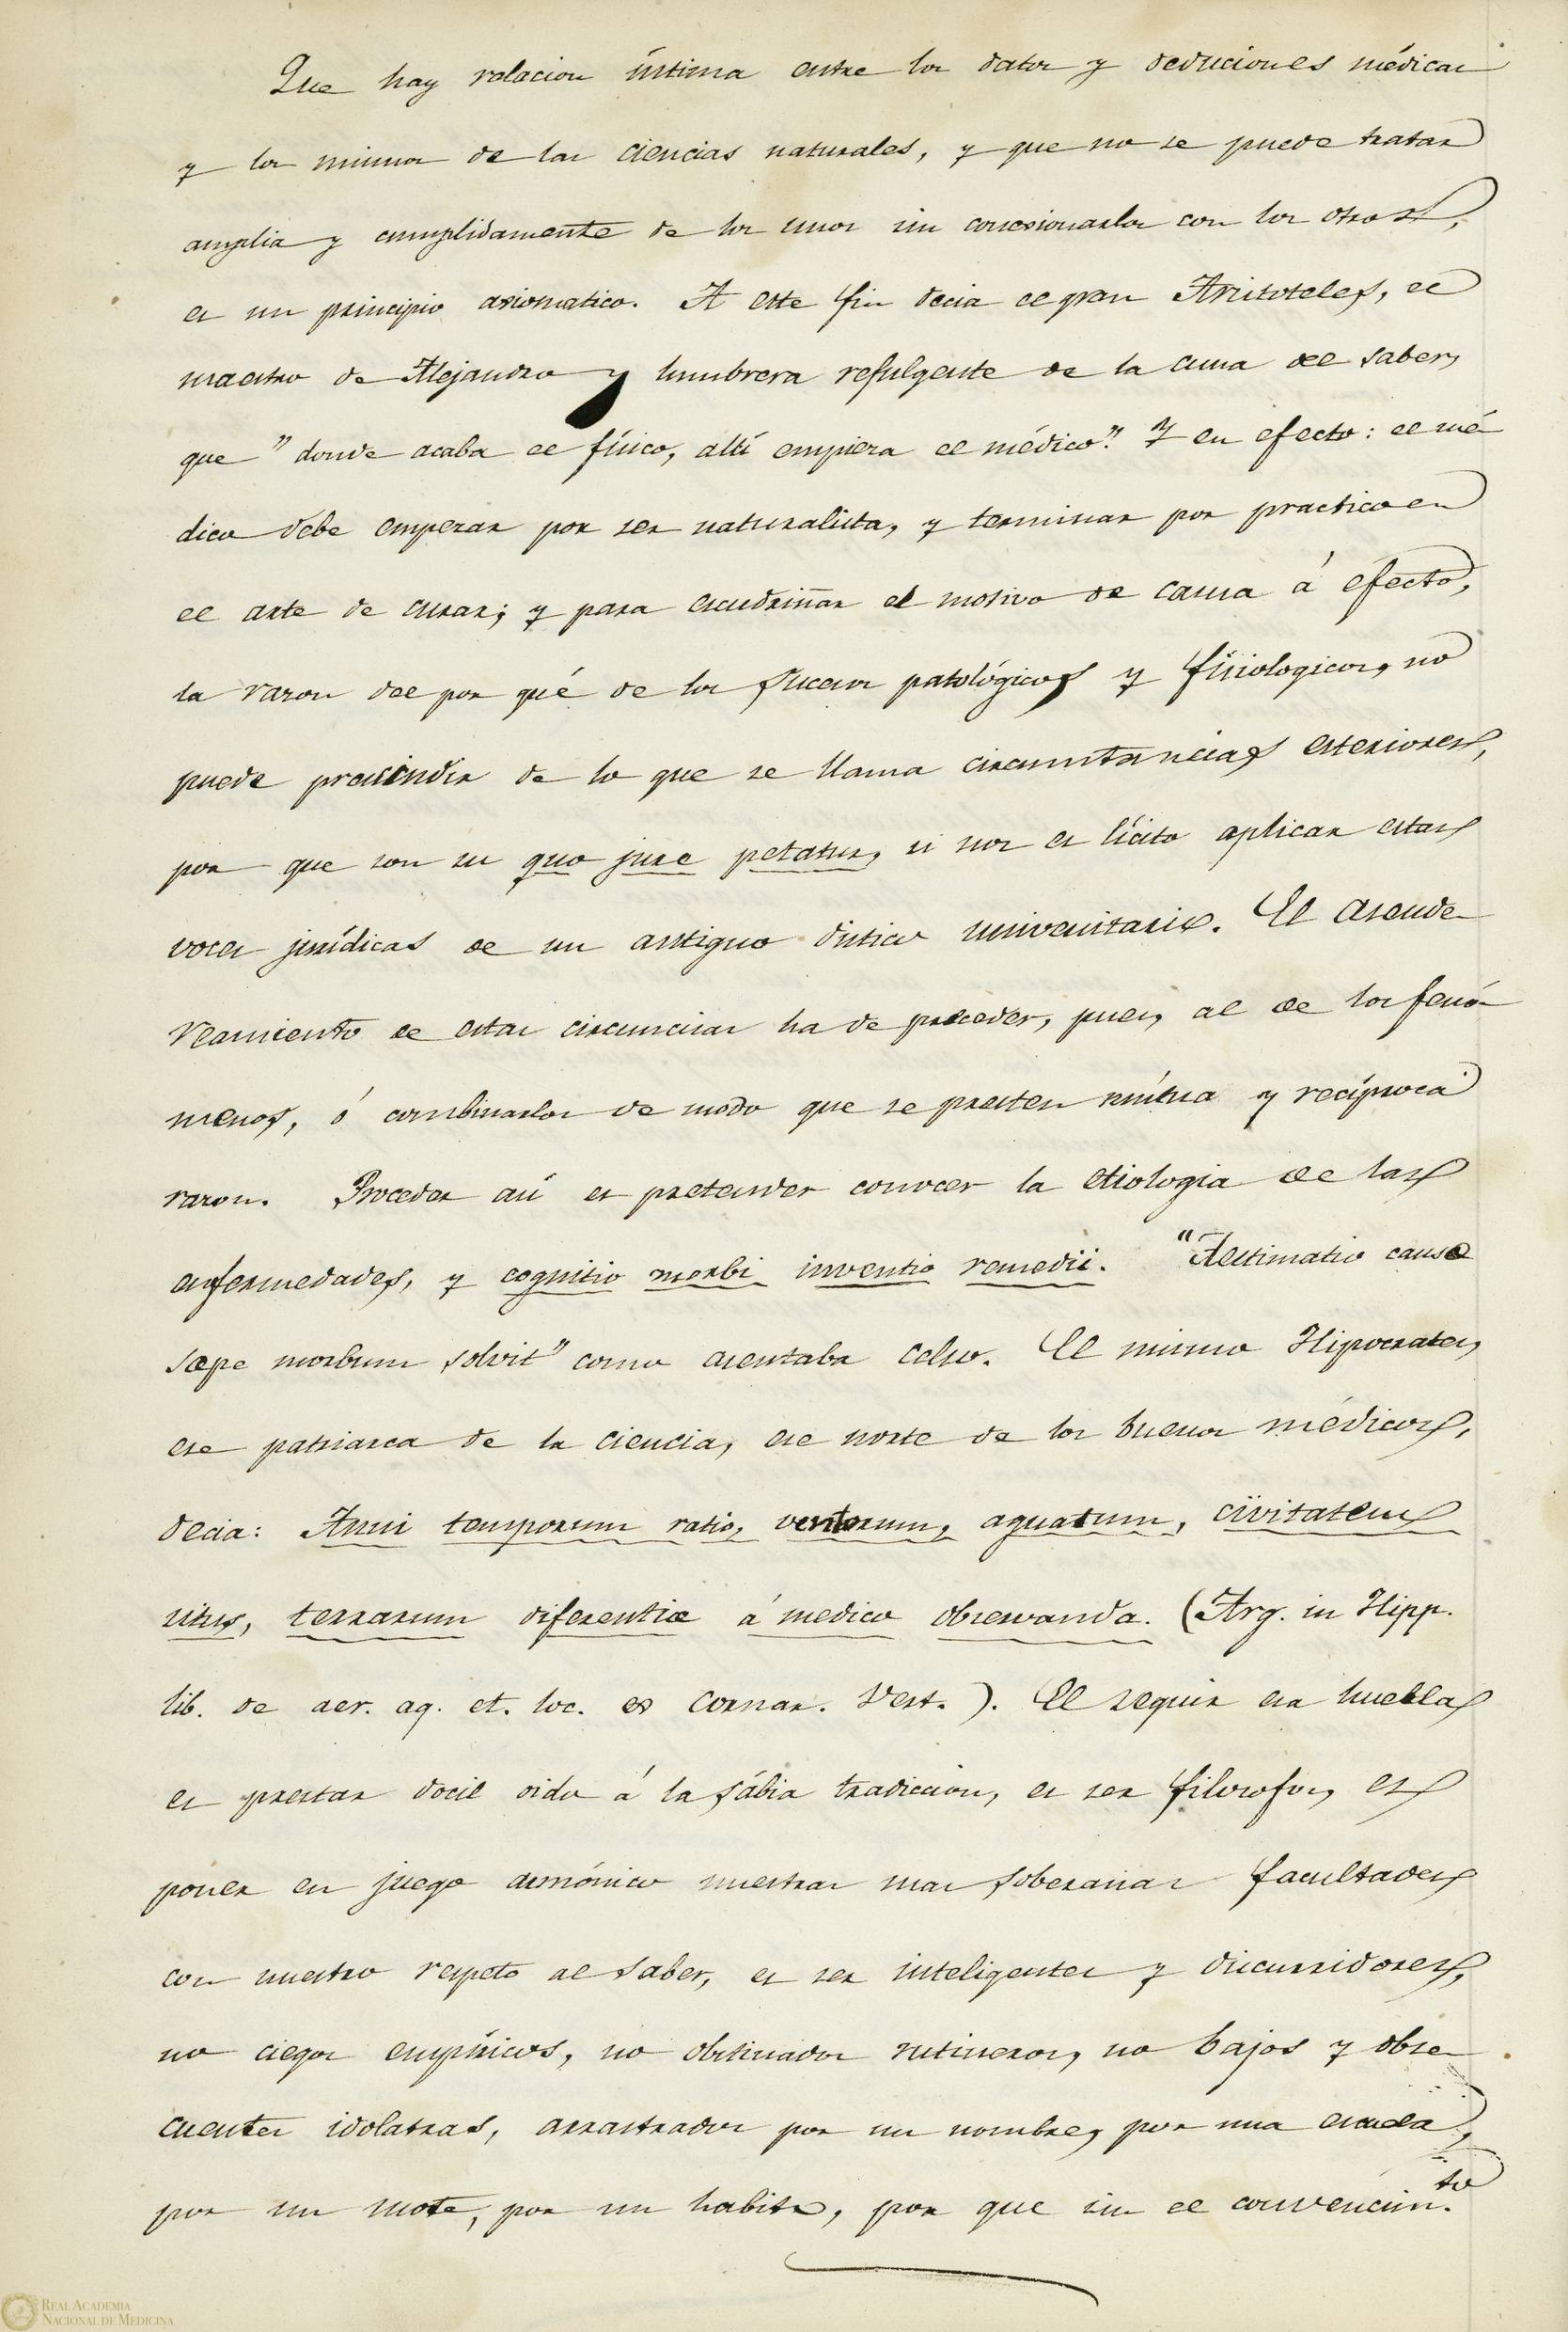 Que hay relacion íntima entre los datos y deduciones médicas
y los mismos de las ciencias naturales, y que no se puede tratar
amplia y cumplidamente de los unos sin conexionarlos con los otros,
es un principio axiomatico. A este fin decia el gran Aristoteles, el
maestro de Alejandro y lumbrera refulgente de la cuna del saber,
que "donde acaba el físico, allí empieza el médico". Y en efecto: el mé
dico debe empezar por ser naturalista, y terminar por practico en
el arte de curar; y para escudriñar el motivo de causa á efecto,
la razon del por qué de los sucesos patológicos y fisiologicos, no
puede prescindir de lo que se llama circunstancias esteriores,
por que son su quo jure petatur, si nos es lícito aplicar estas
voces jurídicas de un antiguo dístico universitario. El asende
reamiento de estas circuncias ha de preceder, pues, al de los fenó
menos, ó combinarlos de modo que se presten mútua y recíproca
razon. Proceder así es pretender conocer la etiologia de las
enfermedades, y cognitio morbi inventio remedii. "Aestimatio causæ
sæpe morbum solvit" como asentaba Celso. El mismo Hipocrates,
ese patriarca de la ciencia, ese norte de los buenos médicos,
decia: Anni temporum ratio, ventorum, aquarum, civitatem
situs, terrarum diferentiæ á medico observanda. (Arg. in Hipp.
lib. de aer. aq. et. loc. ex Cornar. vert.). El seguir esa huellas
es prestar docil oido á la sábia tradiccion, es ser filosofos, es
poner en juego armónico nuestras mas soberanas facultades
con nuestro respeto al saber, es ser inteligentes y discurridores,
no ciegos empíricos, no obstinados rutineros, no bajos y obse
cuentes idolatras, arrastrados por un nombre, por una escuela,
por un mote, por un habito, por que sin el convencim.to
REAL ACADEMIA
NACIONAL DE MEDICINA